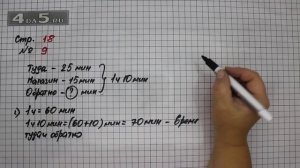 4DA5.RU
Стр. 18
№ 9
Туда – 25 мин
Магазин – 15 мин
Обратно – ? мин
1 ч 10 мин
1) 1 ч = 60 мин
1 ч 10 мин = (60+10) мин = 70 мин – время
туда и обратно